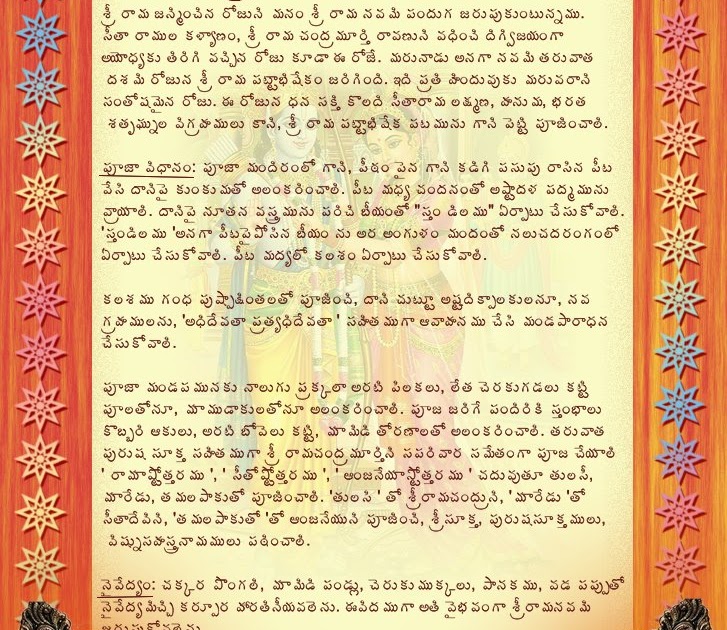 శ్రీ రామ జన్మించిన రోజుని మనం శ్రీ రామ నవమి పండుగ జరుపుకుంటున్నము.
సీతా రాముల కళ్యాణం, శ్రీ రామ చంద్రమూర్తి రావణుని వధించి దిగ్విజయంగా
అయోధ్యకు తిరిగి వచ్చిన రోజు కూడా ఈ రోజే. మరునాడు అనగా నవమి తరువాత
దశమి రోజున శ్రీ రామ పట్టాభిషేకం జరిగింది. ఇది ప్రతి హిందువుకు మరువరాని
సంతోషమైన రోజు. ఈ రోజున ధన సక్తి కొలది సీతారామ లక్ష్మణ, హనుమ, భరత
శతృఘ్నుల విగ్రహములు కాని, శ్రీ రామ పట్టాభిషేక పటమును గాని పెట్టి పూజించాలి.
పూజా విధానం: పూజా మందిరంలో గాని, పీఠం పైన గాని కడిగి పసుపు రాసిన పీట
వేసి దానిపై కుంకుమతో అలంకరించాలి. పీట మధ్య చందనంతో అష్టాదళ పద్మమును
వ్రాయాలి. దానిపై నూతన వస్త్రమును పరిచి బియంతో "స్తం డిలము" ఏర్పాటు చేసుకోవాలి.
'స్తండిలము 'అనగా పీటపైపోసిన బియం ను అర అంగుళం మందంతో నలుచదరంగంలో
ఏర్పాటు చేసుకోవాలి. పీట మద్యలో కలశం ఏర్పాటు చేసుకోవాలి.
కలశము గంధ పుష్పాక్షింతలతో పూజించి, దాని చుట్టూ అష్టదిక్పాలకులనూ, నవ
గ్రహములను, 'అధిదేవతా ప్రత్యధిదేవతా ' సహితముగా ఆవాహనము చేసి మండపారాధన
చేసుకోవాలి.
పూజా మండపమునకు నాలుగు ప్రక్కలా అరటి పిలకలు, లేత చెరకుగడలు కట్టి
పూలతోనూ, మాముడాకులతోనూ అలంకరించాలి. పూజ జరిగే పందిరికి స్తంభాలు
కొబ్బరి ఆకులు, అరటి బోపెలు కట్టి, మామిడి తోరణాలతో అలంకరించాలి. తరువాత
పురుష సూక్త సహితముగా శ్రీ రామచంద్రమూర్తిని సపరివార సమేతంగా పూజ చేయాలి
' రామాష్టోత్తరము ', ' సీతోష్టోత్తరము ', ' ఆంజనేయాస్టోత్తరము ' చదువుతూ తులసీ,
మారేడు, తమలపాకుతో పూజించాలి. 'తులసి ' తో శ్రీరామచంద్రుని, 'మారేడు 'తో
సీతాదేవిని, 'తమలపాకుతో 'తో ఆంజనేయుని పూజించి, శ్రీసూక్త, పురుషసూక్తములు,
విష్నుసహస్త్రనామములు పఠించాలి.
నైవేద్యం: చక్కర పొంగలి, మామిడి పండ్లు, చెరుకుముక్కలు, పానకము, వడ పప్పుతో
నైవేద్యమిచ్చి కర్పూర హారతినీయవలెను. ఈవిదముగా అతి వైభవంగా శ్రీరామనవమి
జరుపుకోవలెను.